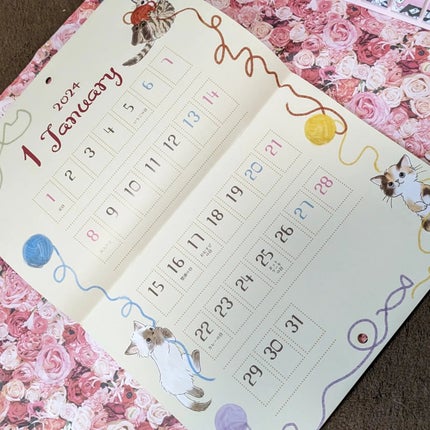 2024
1 January
1 2 3 4 5 6 7
8 9 10 11 12 13 14
15 16 17 18 19 20 21
22 23 24 25 26 27 28
29 30 31